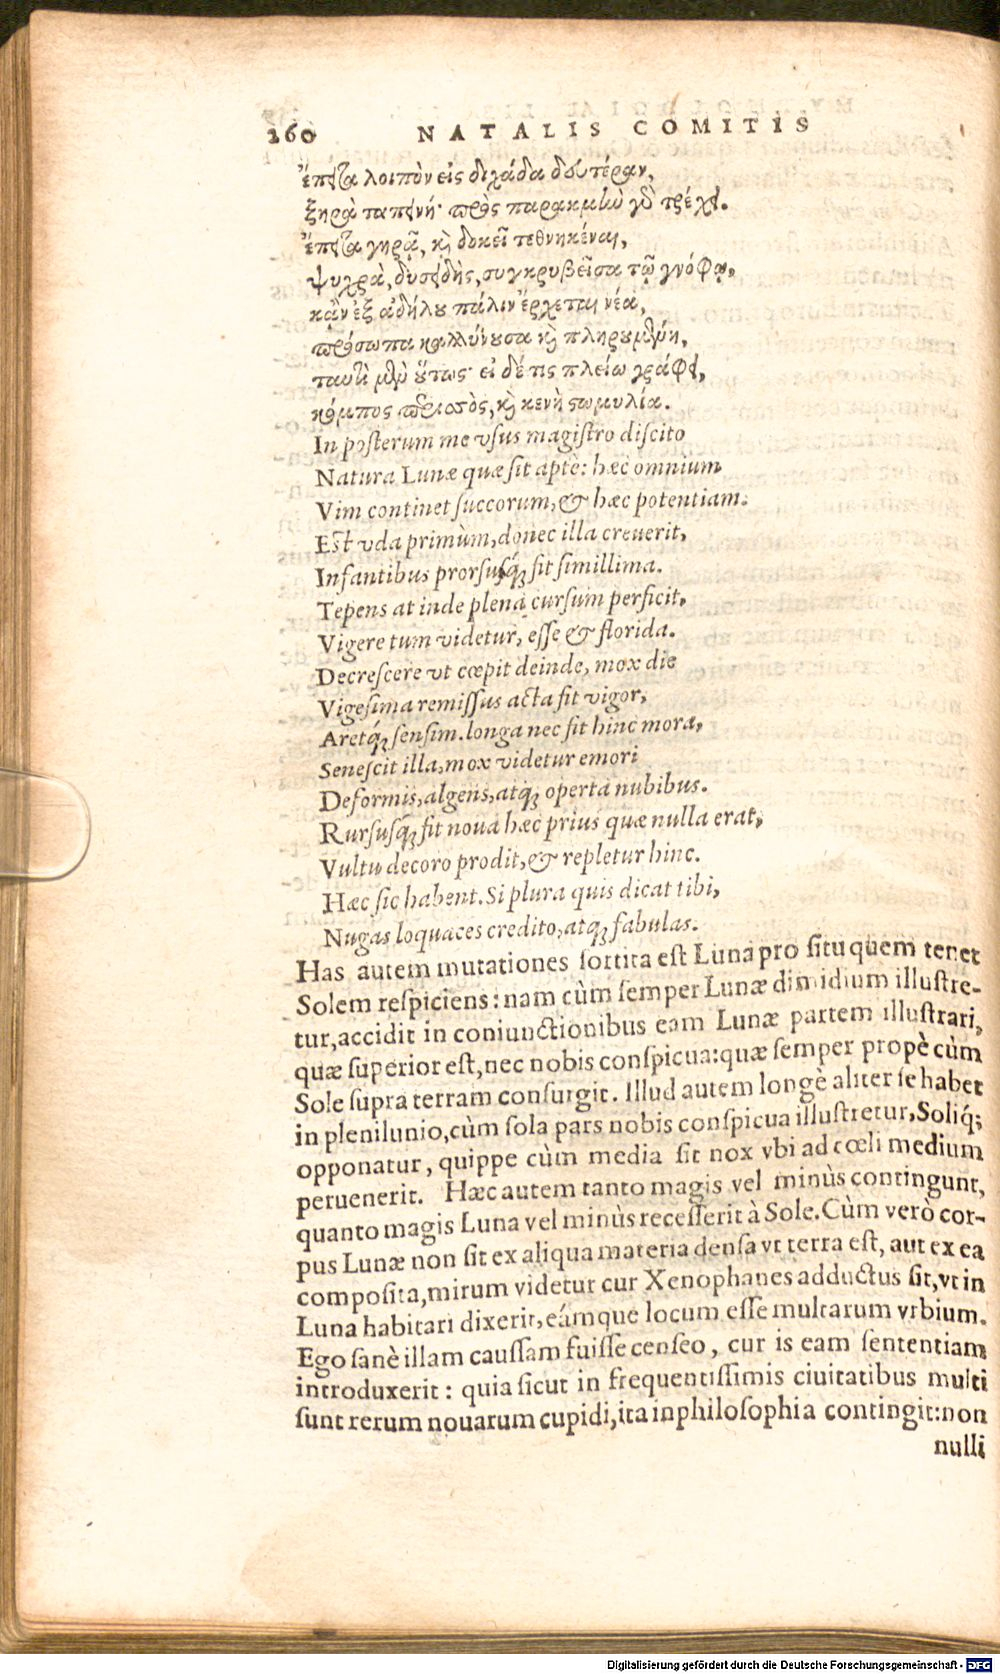 260 NATALIS COMITIS
ἔπειτα λοιπὸν εἰς δεχάδα δευτέραν,
ξηρὰ ταπεινή· πρὸς παρακμὴν γὸ τρέχει.
ἔπειτα γηρᾷ, κỳ δοκεῖ τεθνηκέναι,
ψυχρὰ, δυσειδὴς, συγκρυβεῖσα τῷ γνόφῳ,
κᾂν ἐξ ἀδήλου πάλιν ἔρχεται νέα,
πρόσωπα καλλύνουσα κỳ πληρουμένη,
ταυτὶ μὲν οὕτως· εἰ δέ τις πλείω γράφει,
κόμπος περισσὸς, κỳ κενὴ στωμυλία.
In poſterum me vſus magiſtro diſcito
Natura Lunæ quæ ſit aptè: hæc omnium
Vim continet ſuccorum, & hæc potentiam.
Eſt vda primùm, donec illa creuerit,
Infantibus prorſuſq́; ſit ſimillima.
Tepens at inde plena curſum perficit,
Vigere tum videtur, eſſe & florida.
Decreſcere vt cœpit deinde, mox die
Vigeſima remiſſus acta fit vigor,
Aretq́; ſenſim. longa nec fit hinc mora,
Seneſcit illa, mox videtur emori
Deformis, algens, atq; operta nubibus.
Rurſuſq́; fit noua hæc prius quæ nulla erat,
Vultu decoro prodit, & repletur hinc.
Hæc ſic habent. Si plura quis dicat tibi,
Nugas loquaces credito, atq; fabulas.
Has autem mutationes ſortita eſt Luna pro ſitu quem tenet
Solem reſpiciens: nam cùm ſemper Lunæ dimidium illuſtre-
tur, accidit in coniunctionibus eam Lunæ partem illuſtrari,
quæ ſuperior eſt, nec nobis conſpicua: quæ ſemper propè cùm
Sole ſupra terram conſurgit. Illud autem longè aliter ſe habet
in plenilunio, cùm ſola pars nobis conſpicua illuſtretur, Soliq́;
opponatur, quippe cùm media ſit nox vbi ad cœli medium
peruenerit. Hæc autem tanto magis vel minùs contingunt,
quanto magis Luna vel minùs receſſerit à Sole. Cùm verò cor-
pus Lunæ non ſit ex aliqua materia denſa vt terra eſt, aut ex ea
compoſita, mirum videtur cur Xenophanes adductus ſit, vt in
Luna habitari dixerit, eámque locum eſſe multarum vrbium.
Ego ſanè illam cauſſam fuiſſe cenſeo, cur is eam ſententiam
introduxerit: quia ſicut in frequentiſſimis ciuitatibus multi
ſunt rerum nouarum cupidi, ita in philoſophia contingit: non
nulli
Digitalisierung gefördert durch die Deutsche Forschungsgemeinschaft - DFG